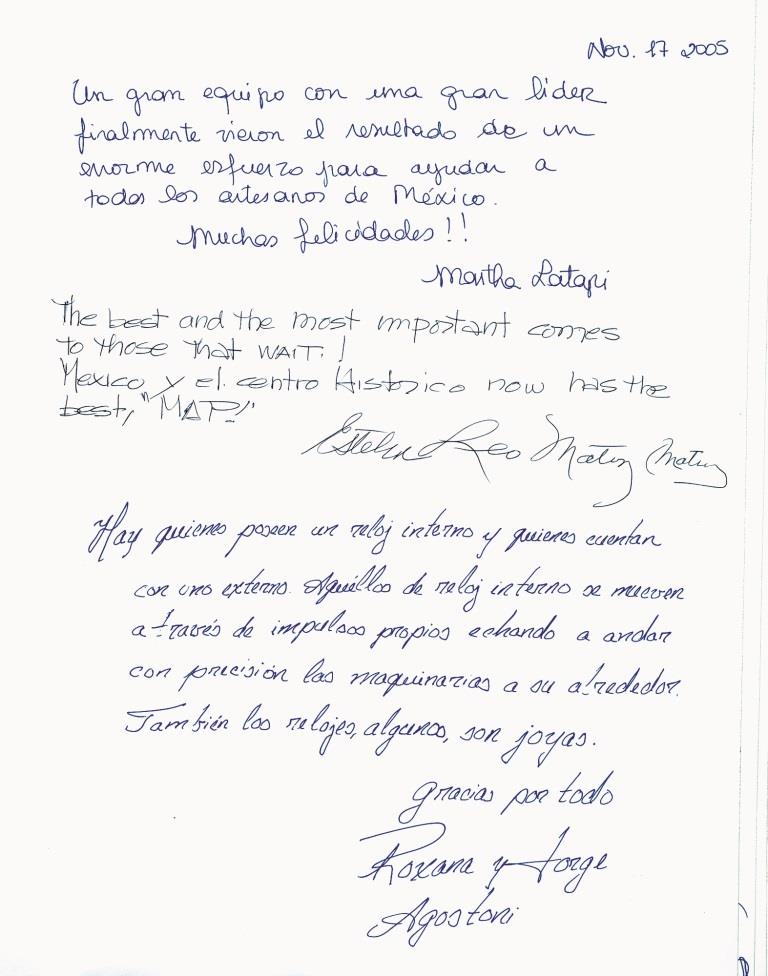 Nov. 17 2005
Un gran equipo con una gran lider
finalmente vieron el resultado de un
enorme esfuerzo para ayudar a
todos los artesanos de México.
Muchas felicidades!!
Martha Latapi
The best and the most important comes
to those that WAIT. !
Mexico y el centro Historico now has the
best, "MAP!"
Hay quienes poseen un reloj interno y quienes cuentan
con uno externo. Aquéllos de reloj interno se mueven
a través de impulsos propios echando a andar
con precisión las maquinarias a su alrededor.
También los relojes, algunos, son joyas.
Gracias por todo
Roxana y Jorge
Agostoni